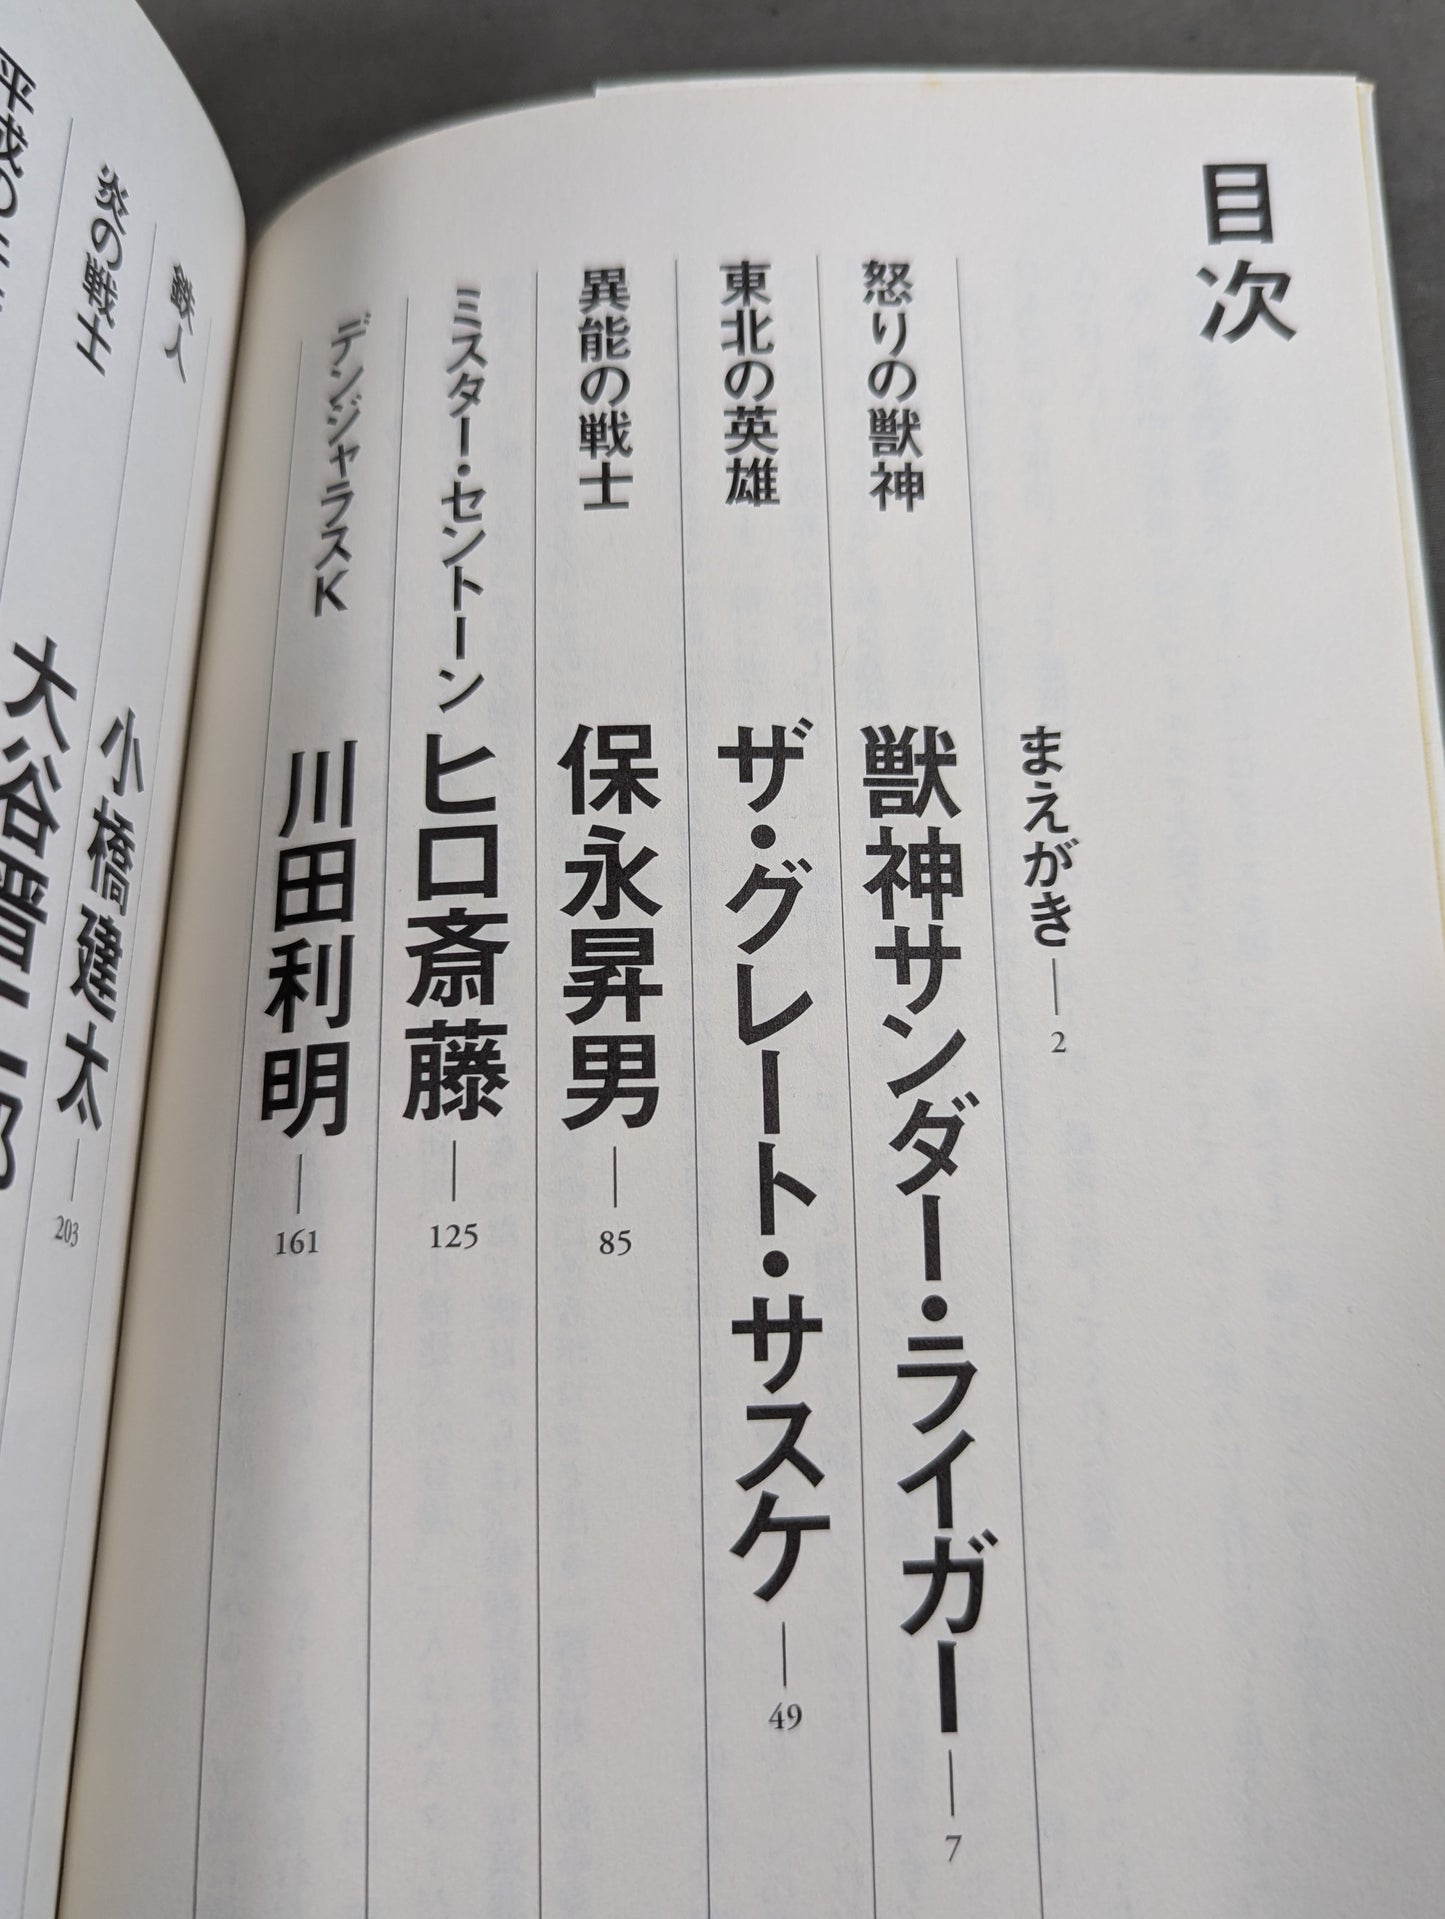 目次
まえがき―2
怒りの獣神 獣神サンダー・ライガー―7
東北の英雄 ザ・グレート・サスケ―49
異能の戦士 保永昇男―85
ミスター・セントーン ヒロ斎藤―125
デンジャラスK 川田利明―161
鉄人 小橋建太―203
炎の戦士 大谷晋二郎
平成の